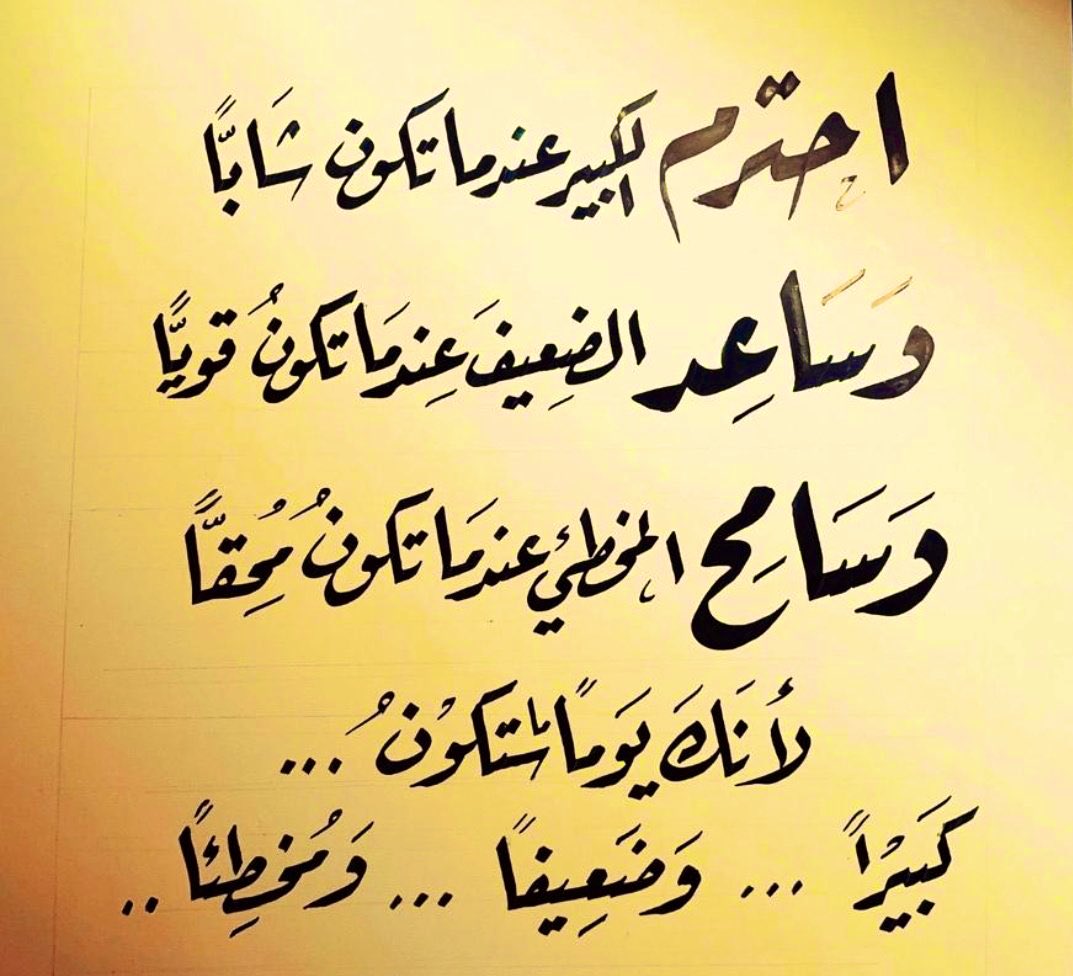 احترم الكبير عندما تكون شَابًّا
وَسَاعِد الضعِيفَ عِندمَا تكونُ قويًّا
وَسَامِح المخطئ عندمَا تكونُ مُحِقًّا
لأنكَ يَومًا ما ستكوْنُ ...
كبَيْرًا ... وَضَعِيفًا ... وَمُخطِئًا ..